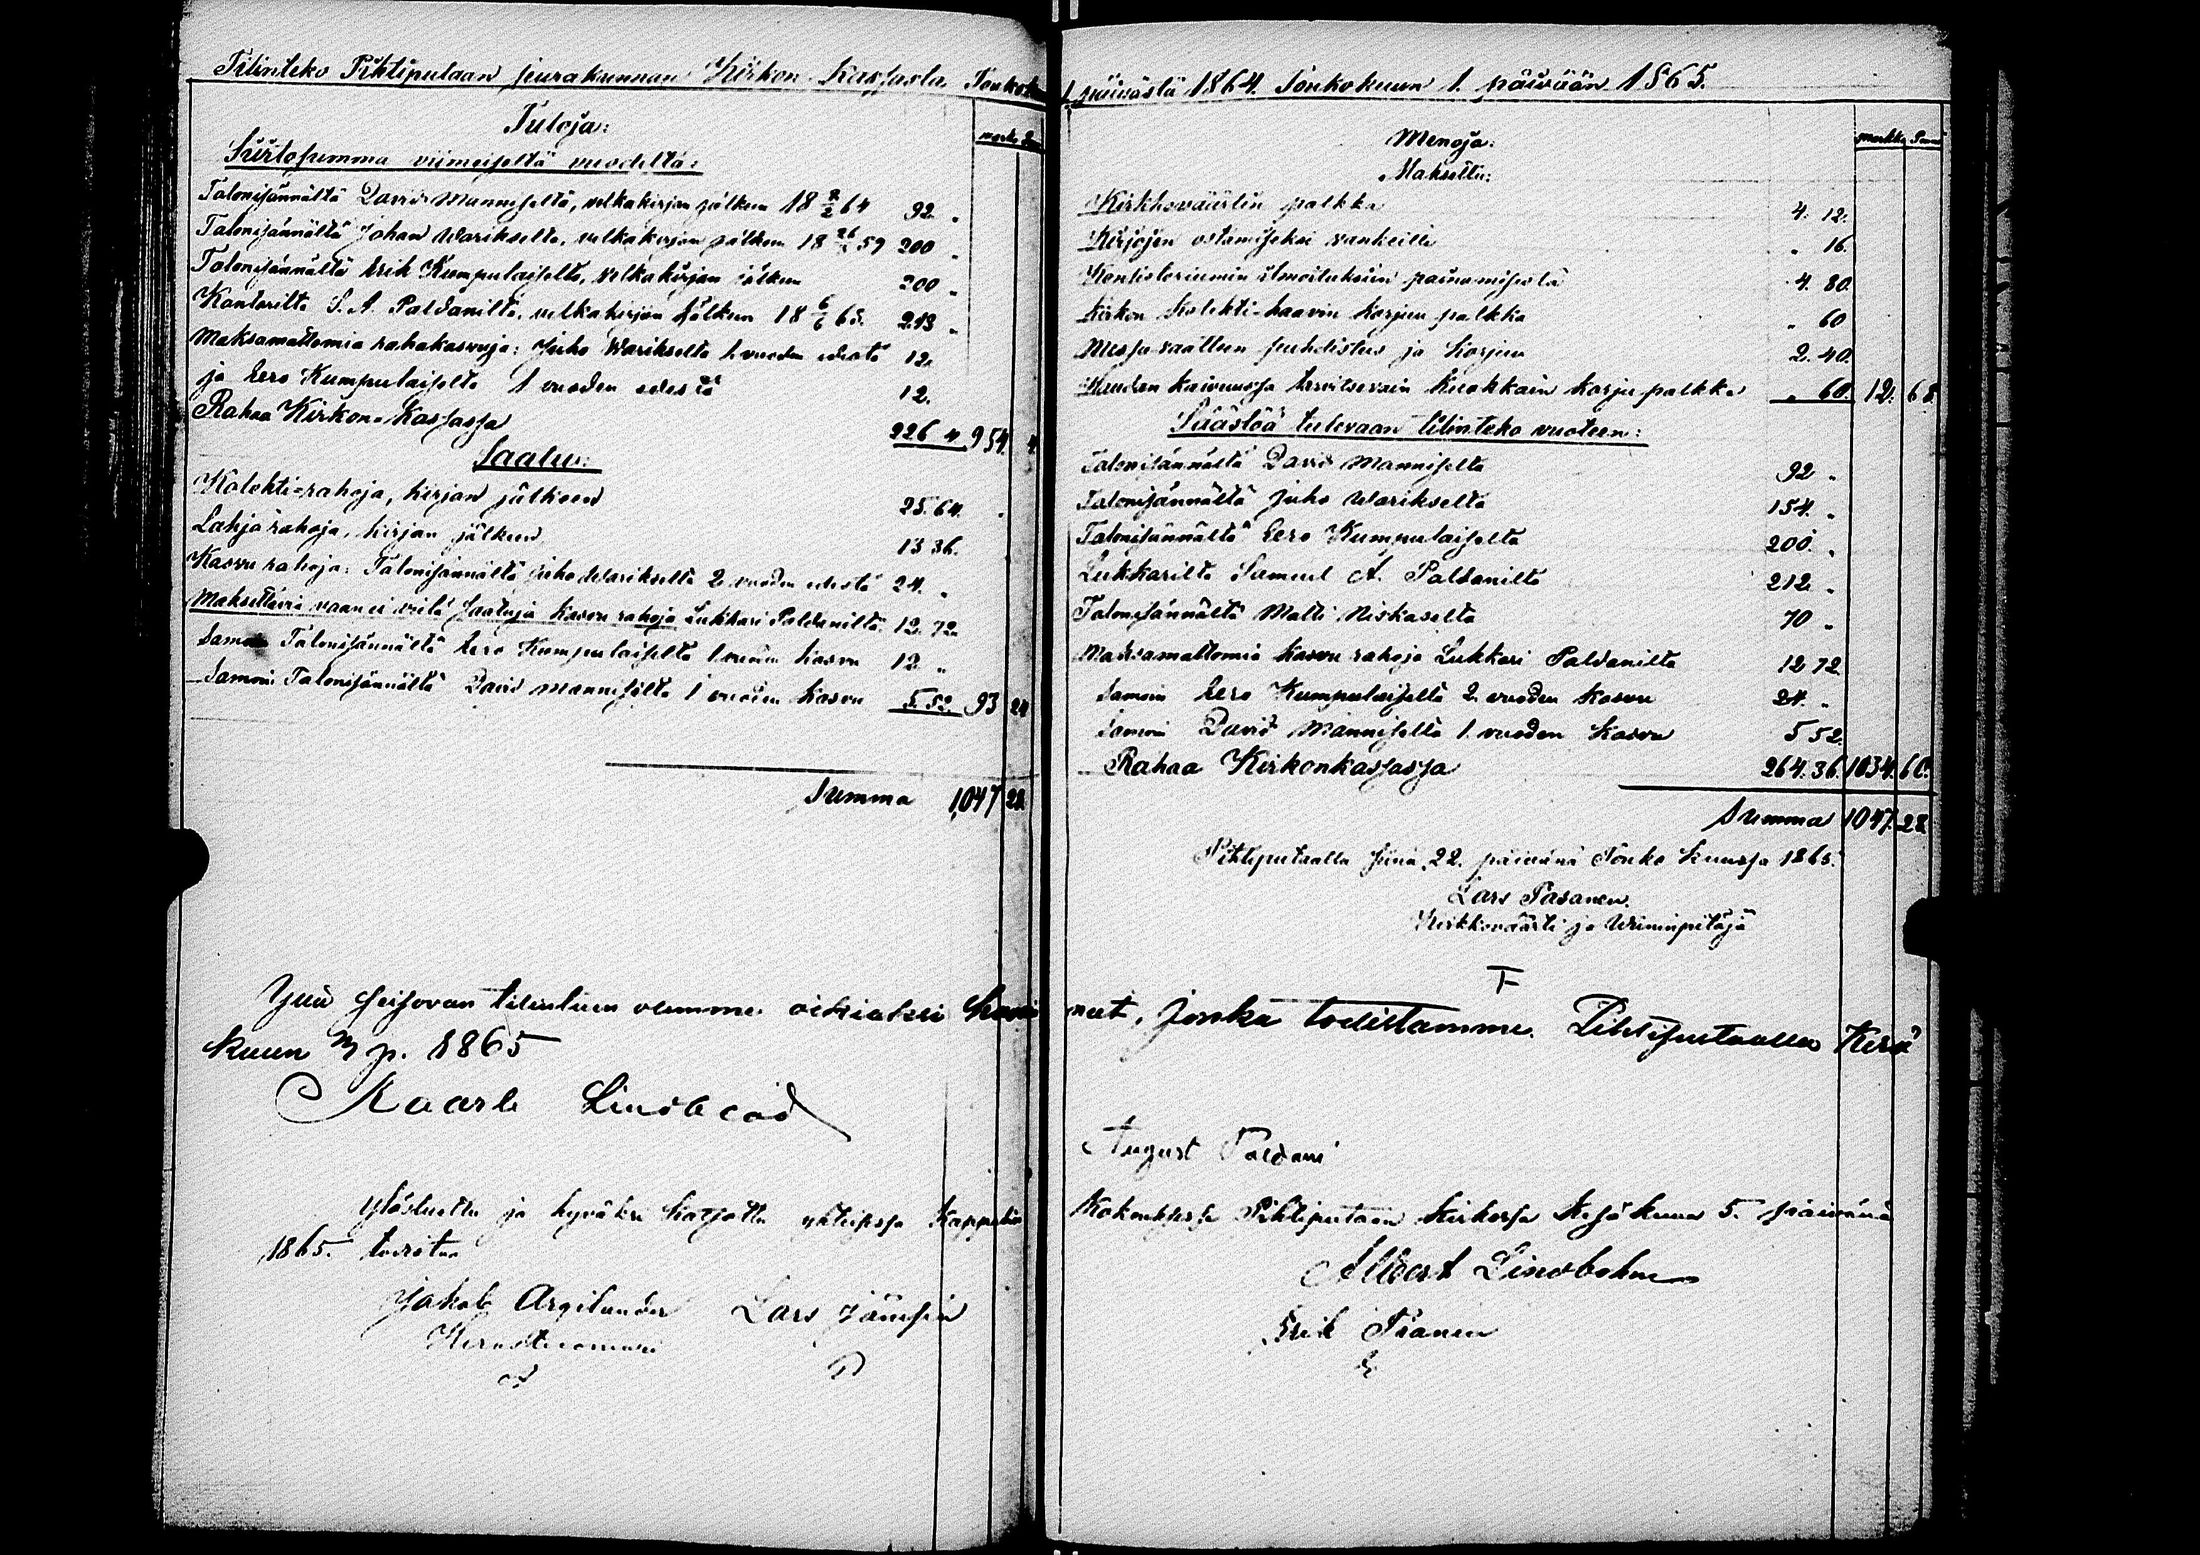 Tilinteko Pihtiputaan seurakunnan Kirkon-Kassasta Toukok 1 päivästä 1864 Toukokuun 1. päivään 1865.
Tuloja:
Siirtosumma viimeiseltä vuodelta:
Talonisännältä David Manniselta, velkakirjan jälkeen 18 2/2 64 92 „
Talonisännältä Johan Warikselta, velkakirjan jälkeen 18 59 200 „
Talonisännältä Erik Kumpulaiselta, velkakirjan jälkeen 200 „
Kanttorilta S. A. Paldanilta, velkakirjan jälkeen 18 6/6 63. 212 „
Maksamattomia rahakasvuja: Juho Warikselta 1 vuoden edestä 12.
ja Eero Kumpulaiselta 1 vuoden edestä 12.
Rahaa Kirkon-Kassassa 226 4. 954. 4
Saatu:
Kolehti-rahoja, kirjan jälkeen 25. 64.
Lahja rahoja, kirjan jälkeen 13 36.
Kasvu rahoja: Talonisännältä Juho Warikselta 2 vuoden edestä 24. „
Maksettavia vaan ei vielä saatuja kasvu rahoja Lukkari Paldanilta 12. 72.
Samoin Talonisännältä Eero Kumpulaiselta 1 vuoden kasvu 12 „
Samoin Talonisännältä David Manniselta 1 vuoden kasvu 5. 52. 93 24
Summa 1,047 28.
marka
Menoja:
markka Penni
Maksettu:
Kirkkoväärtin palkka 4. 12.
Kirjojen ostamiseksi vankeille „ 16.
Konsistoriumin ilmoituksien painamisesta 4. 80.
Kirkon Kolehti-haavin korjuu palkka „ 60
Messu-vaatteen puhdistus ja korjuu 2. 40.
Haudan kaivuussa tarvitsevain kuokkain korju-palkka „ 60. 12. 68.
Säästöä tulevaan tilinteko vuoteen:
Talonisännältä David Manniselta 92 „
Talonisännältä Juho Warikselta 154. „
Talonisännältä Eero Kumpulaiselta 200. „
Lukkarilta Samuel A. Paldanilta 212 „
Talonisännältä Matti Niskaselta 70 „
Maksamattomia kasvu rahoja Lukkari Paldanilta 12 72
Samoin Eero Kumpulaiselta 2. vuoden kasvu 24. „
Samoin David Manniselta 1. vuoden kasvu 5 52.
Rahaa Kirkonkassassa 264. 36. 1034. 60.
Summa 1047. 28
Pihtiputaalla sinä 22. päivänä Touko kuussa 1865.
Lars Pasanen.
Kirkkoväärti ja
Tän seisovan tilinteon olemme oikiaksi havainneet, jonka todistamme. Pihtiputaalla Kesä
kuun 3 p. 1865
Kaarle
August Paldani
Ylösluettu ja hyväksi katsottu yhteisessä Kappelin Kokouksessa Pihtiputaan kirkossa Kesäkuun 5. päivänä
1865. todistaa
Albert Lindbohm
Jakob Argillander Lars Jämsén
Erik